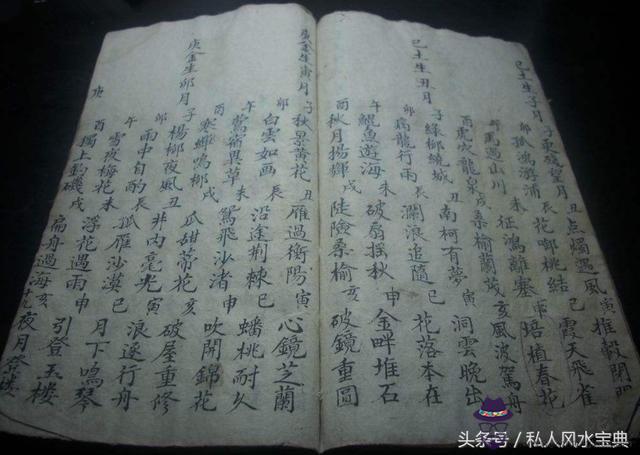 己土生子月 子更残望月 丑点烛遇风 寅推毂开门
卯孤鸿游浦 辰花啣桃结 巳霞天飛雀
午馬過山川 未征鴻離塞 申培植春花
酉虎灾龍泉 戌桑榆蘭茂 亥風波駕舟
己土生丑月 子綠柳繞城 丑南柯有夢 寅洞雲晚出
卯病龍行雨 辰瀾浪追隨 巳花落本在
午鯤魚遊海 未破扇摇秋 申金畔堆石
酉秋月揚輝 戌陡險桑榆 亥破鏡重圓
庚金生寅月 子秋景黃花 丑雁過衡陽 寅心鏡芝蘭
卯白雲如画 辰沿途荆棘 巳蟠桃耐久
午鶯嬌異草 未鴛飛沙渚 申吹開錦花
酉寒蟬鳴柳 戌瓜甜蒂花 亥破屋重修
庚金生卯月 子楊柳夜風 丑井内亮光 寅浪逐行舟
卯雨中自酌 辰孤雁沙漠 巳月下鳴琴
午雪夜梅花 未浮花遇雨 申引登玉樓
酉獨上釣磯 戌扁舟過海 亥夜月登樓
庚
头条号／私人风水宝典